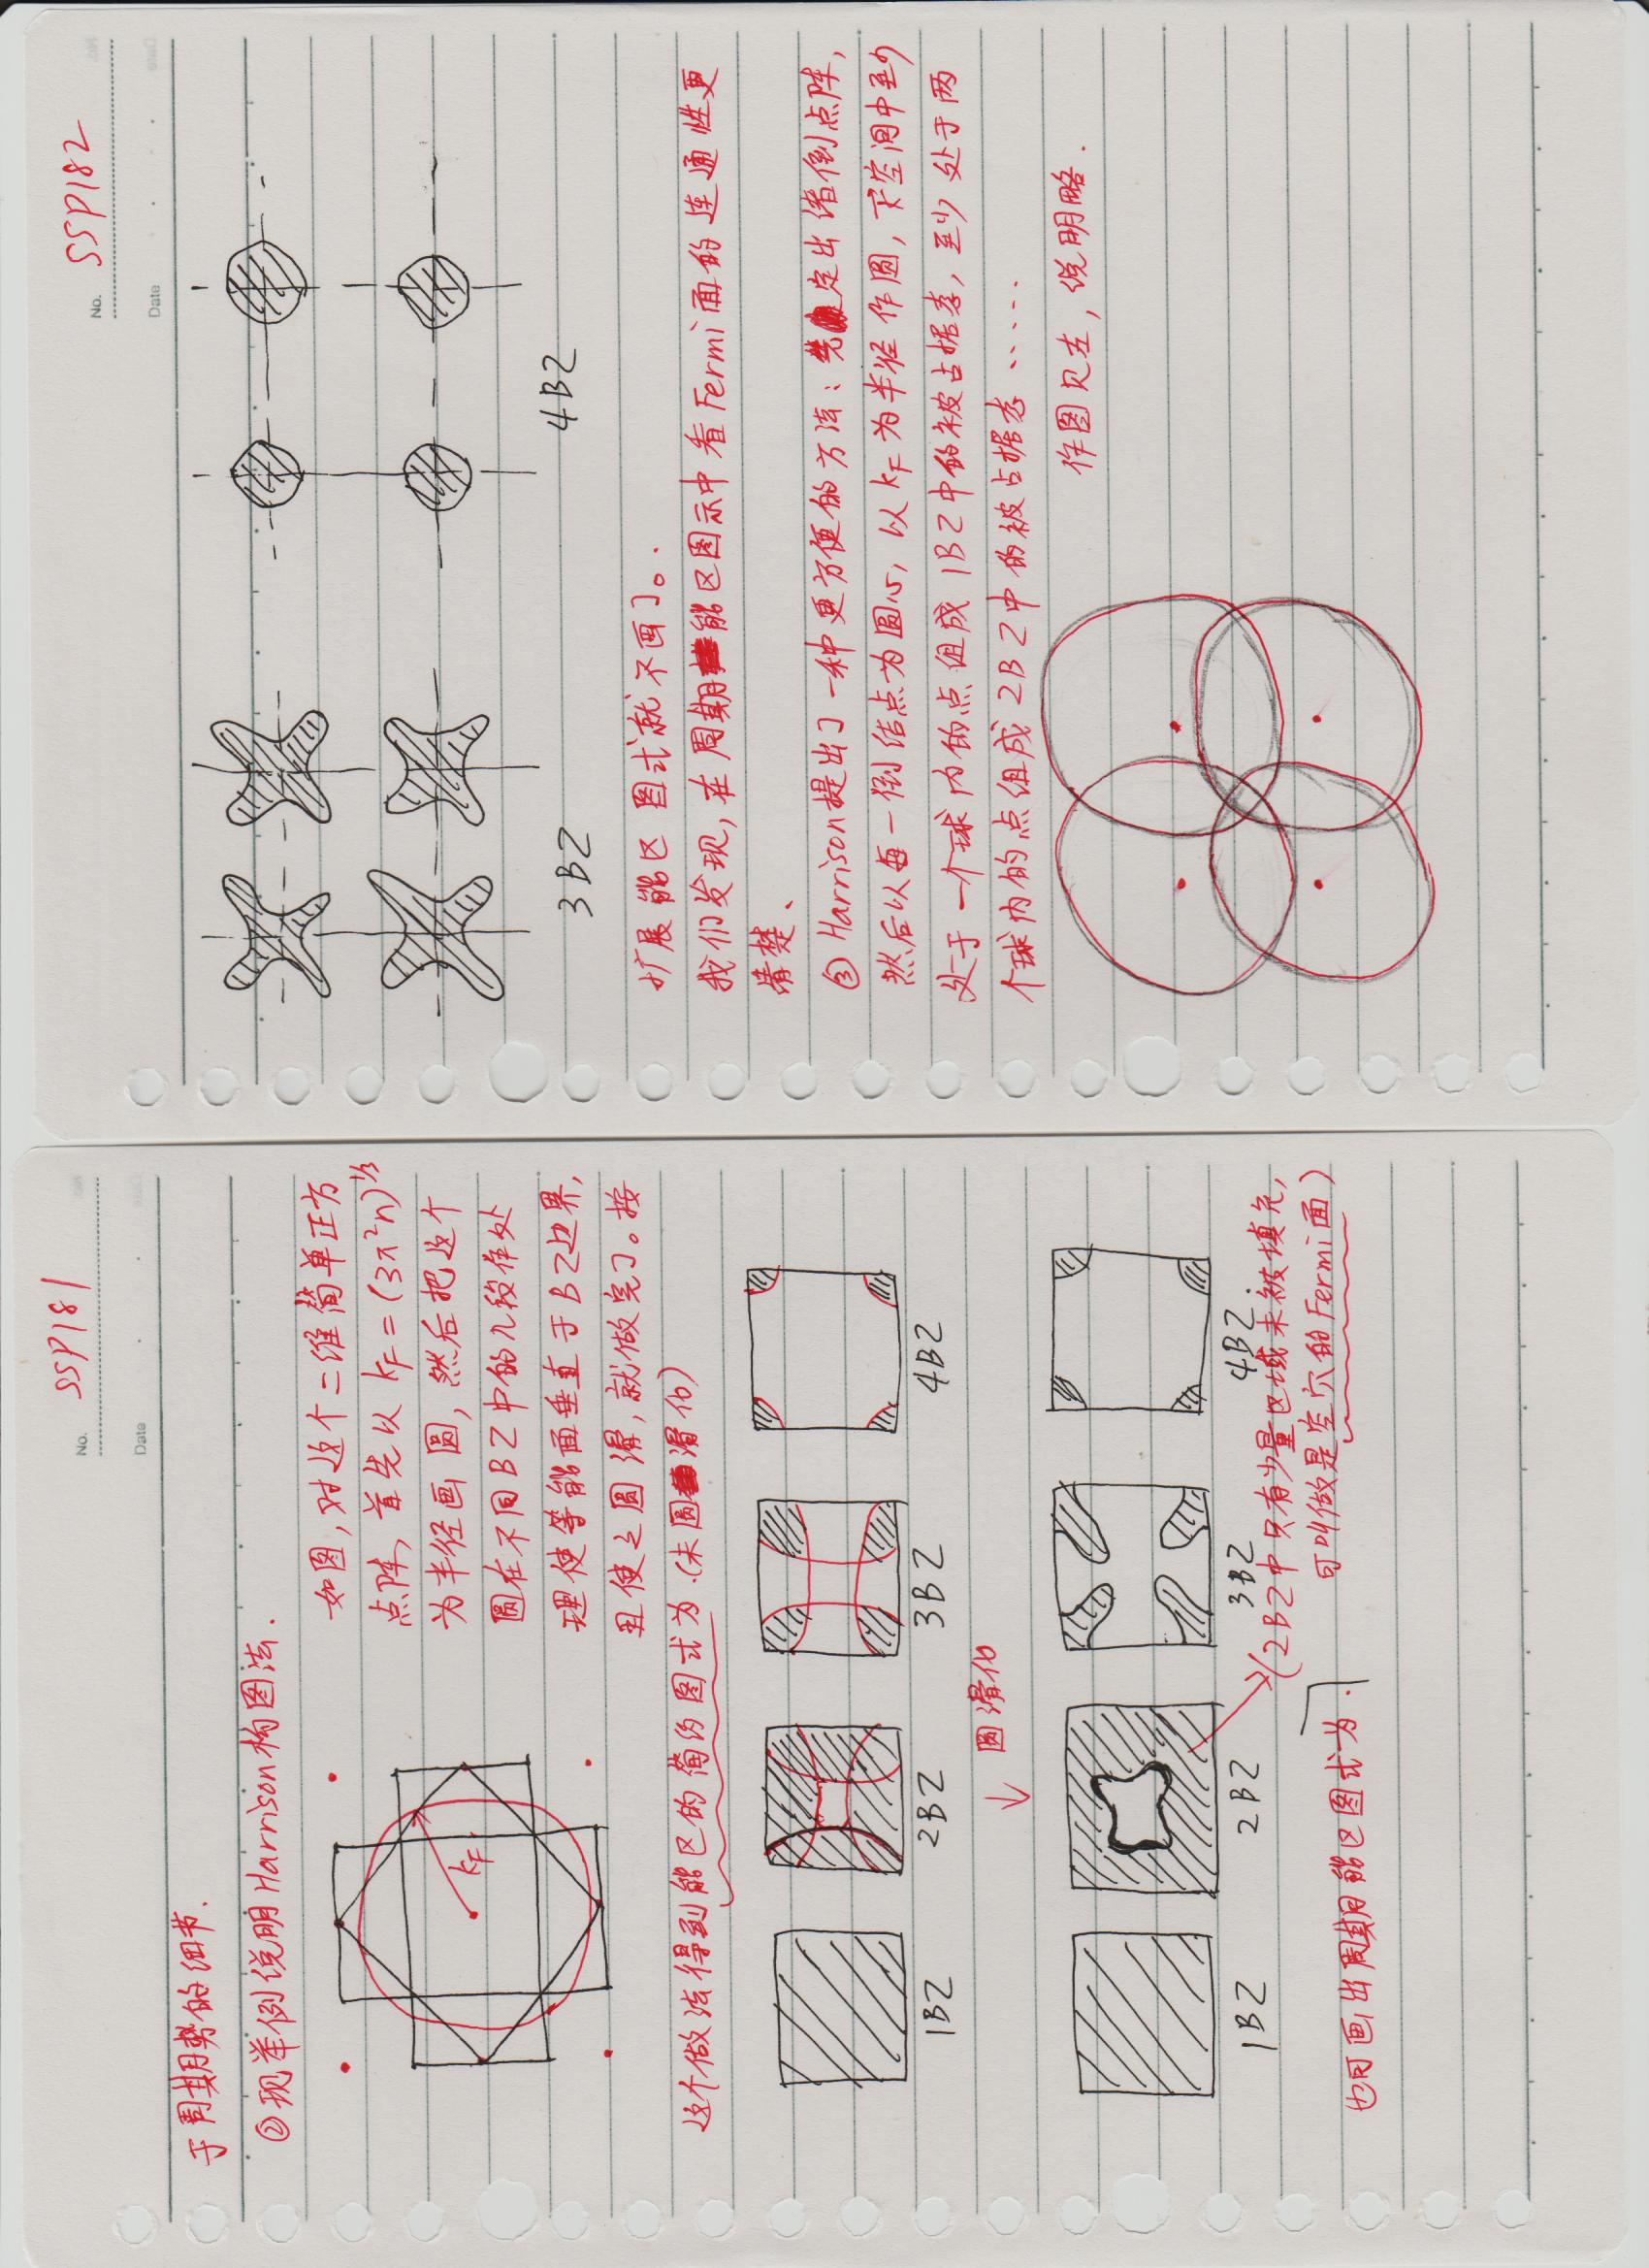 No. SSP181
Date
于周期势的细节.
②现举例说明Harrison构图法.
如图,对这个二维简单正方
点阵,首先以 k_F=(3π²n)^{1/3}
为半径画圆,然后把这个
圆在不同BZ中的几段作处
理使等能面垂直于BZ边界,
且使之圆滑,就做完了。按
k_F
这个做法得到能区的简约图式为.(未圆滑化)
1BZ 2BZ 3BZ 4BZ
↓ 圆滑化
1BZ 2BZ 3BZ 4BZ.
(2BZ中只有少量区域未被填充,
可叫做是空穴的Fermi面)
也可画出周期能区图式为.
No. SSP182
Date
3BZ 4BZ
扩展能区图式就不画了。.
我们发现,在周期能区图示中看Fermi面的连通性更
清楚、
③Harrison提出了一种更方便的方法:先定出诸倒点阵,
然后以每一倒结点为圆心,以k_F为半径作圆,k空间中至少
处于一个球内的点组成1BZ中的被占据态,至少处于两
个球内的点组成2BZ中的被占据态……
作图见左,说明略.